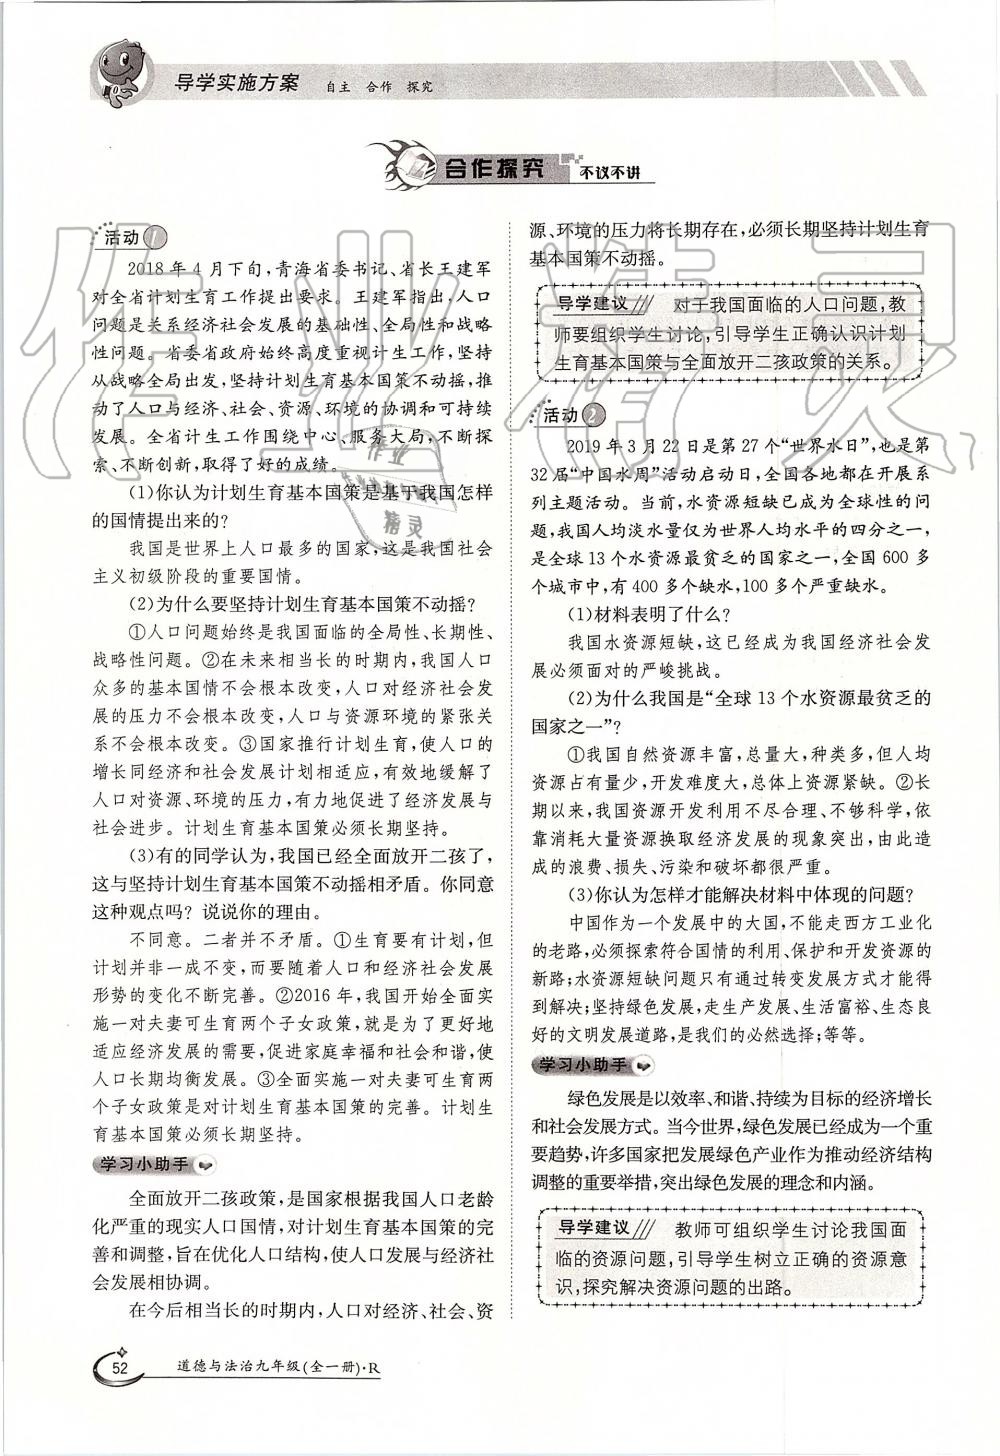 导学实施方案 自主 合作 探究
合作探究 不议不讲
活动1
2018年4月下旬,青海省委书记、省长王建军
对全省计划生育工作提出要求。王建军指出,人口
问题是关系经济社会发展的基础性、全局性和战略
性问题。省委省政府始终高度重视计生工作,坚持
从战略全局出发,坚持计划生育基本国策不动摇,推
动了人口与经济、社会、资源、环境的协调和可持续
发展。全省计生工作围绕中心、服务大局,不断探
索、不断创新,取得了好的成绩。
(1)你认为计划生育基本国策是基于我国怎样
的国情提出来的?
我国是世界上人口最多的国家,这是我国社会
主义初级阶段的重要国情。
(2)为什么要坚持计划生育基本国策不动摇?
①人口问题始终是我国面临的全局性、长期性、
战略性问题。②在未来相当长的时期内,我国人口
众多的基本国情不会根本改变,人口对经济社会发
展的压力不会根本改变,人口与资源环境的紧张关
系不会根本改变。③国家推行计划生育,使人口的
增长同经济和社会发展计划相适应,有效地缓解了
人口对资源、环境的压力,有力地促进了经济发展与
社会进步。计划生育基本国策必须长期坚持。
(3)有的同学认为,我国已经全面放开二孩了,
这与坚持计划生育基本国策不动摇相矛盾。你同意
这种观点吗?说说你的理由。
不同意。二者并不矛盾。①生育要有计划,但
计划并非一成不变,而要随着人口和经济社会发展
形势的变化不断完善。②2016年,我国开始全面实
施一对夫妻可生育两个子女政策,就是为了更好地
适应经济发展的需要,促进家庭幸福和社会和谐,使
人口长期均衡发展。③全面实施一对夫妻可生育两
个子女政策是对计划生育基本国策的完善。计划生
育基本国策必须长期坚持。
学习小助手
全面放开二孩政策,是国家根据我国人口老龄
化严重的现实人口国情,对计划生育基本国策的完
善和调整,旨在优化人口结构,使人口发展与经济社
会发展相协调。
在今后相当长的时期内,人口对经济、社会、资
源、环境的压力将长期存在,必须长期坚持计划生育
基本国策不动摇。
导学建议 对于我国面临的人口问题,教
师要组织学生讨论,引导学生正确认识计划
生育基本国策与全面放开二孩政策的关系。
活动2
2019年3月22日是第27个“世界水日”,也是第
32届“中国水周”活动启动日,全国各地都在开展系
列主题活动。当前,水资源短缺已成为全球性的问
题,我国人均淡水量仅为世界人均水平的四分之一,
是全球13个水资源最贫乏的国家之一,全国600多
个城市中,有400多个缺水,100多个严重缺水。
(1)材料表明了什么?
我国水资源短缺,这已经成为我国经济社会发
展必须面对的严峻挑战。
(2)为什么我国是“全球13个水资源最贫乏的
国家之一”?
①我国自然资源丰富,总量大,种类多,但人均
资源占有量少,开发难度大,总体上资源紧缺。②长
期以来,我国资源开发利用不尽合理、不够科学,依
靠消耗大量资源换取经济发展的现象突出,由此造
成的浪费、损失、污染和破坏都很严重。
(3)你认为怎样才能解决材料中体现的问题?
中国作为一个发展中的大国,不能走西方工业化
的老路,必须探索符合国情的利用、保护和开发资源的
新路;水资源短缺问题只有通过转变发展方式才能得
到解决;坚持绿色发展,走生产发展、生活富裕、生态良
好的文明发展道路,是我们的必然选择;等等。
学习小助手
绿色发展是以效率、和谐、持续为目标的经济增长
和社会发展方式。当今世界,绿色发展已经成为一个重
要趋势,许多国家把发展绿色产业作为推动经济结构
调整的重要举措,突出绿色发展的理念和内涵。
导学建议 教师可组织学生讨论我国面
临的资源问题,引导学生树立正确的资源意
识,探究解决资源问题的出路。
52 道德与法治九年级(全一册)·R
作业精灵